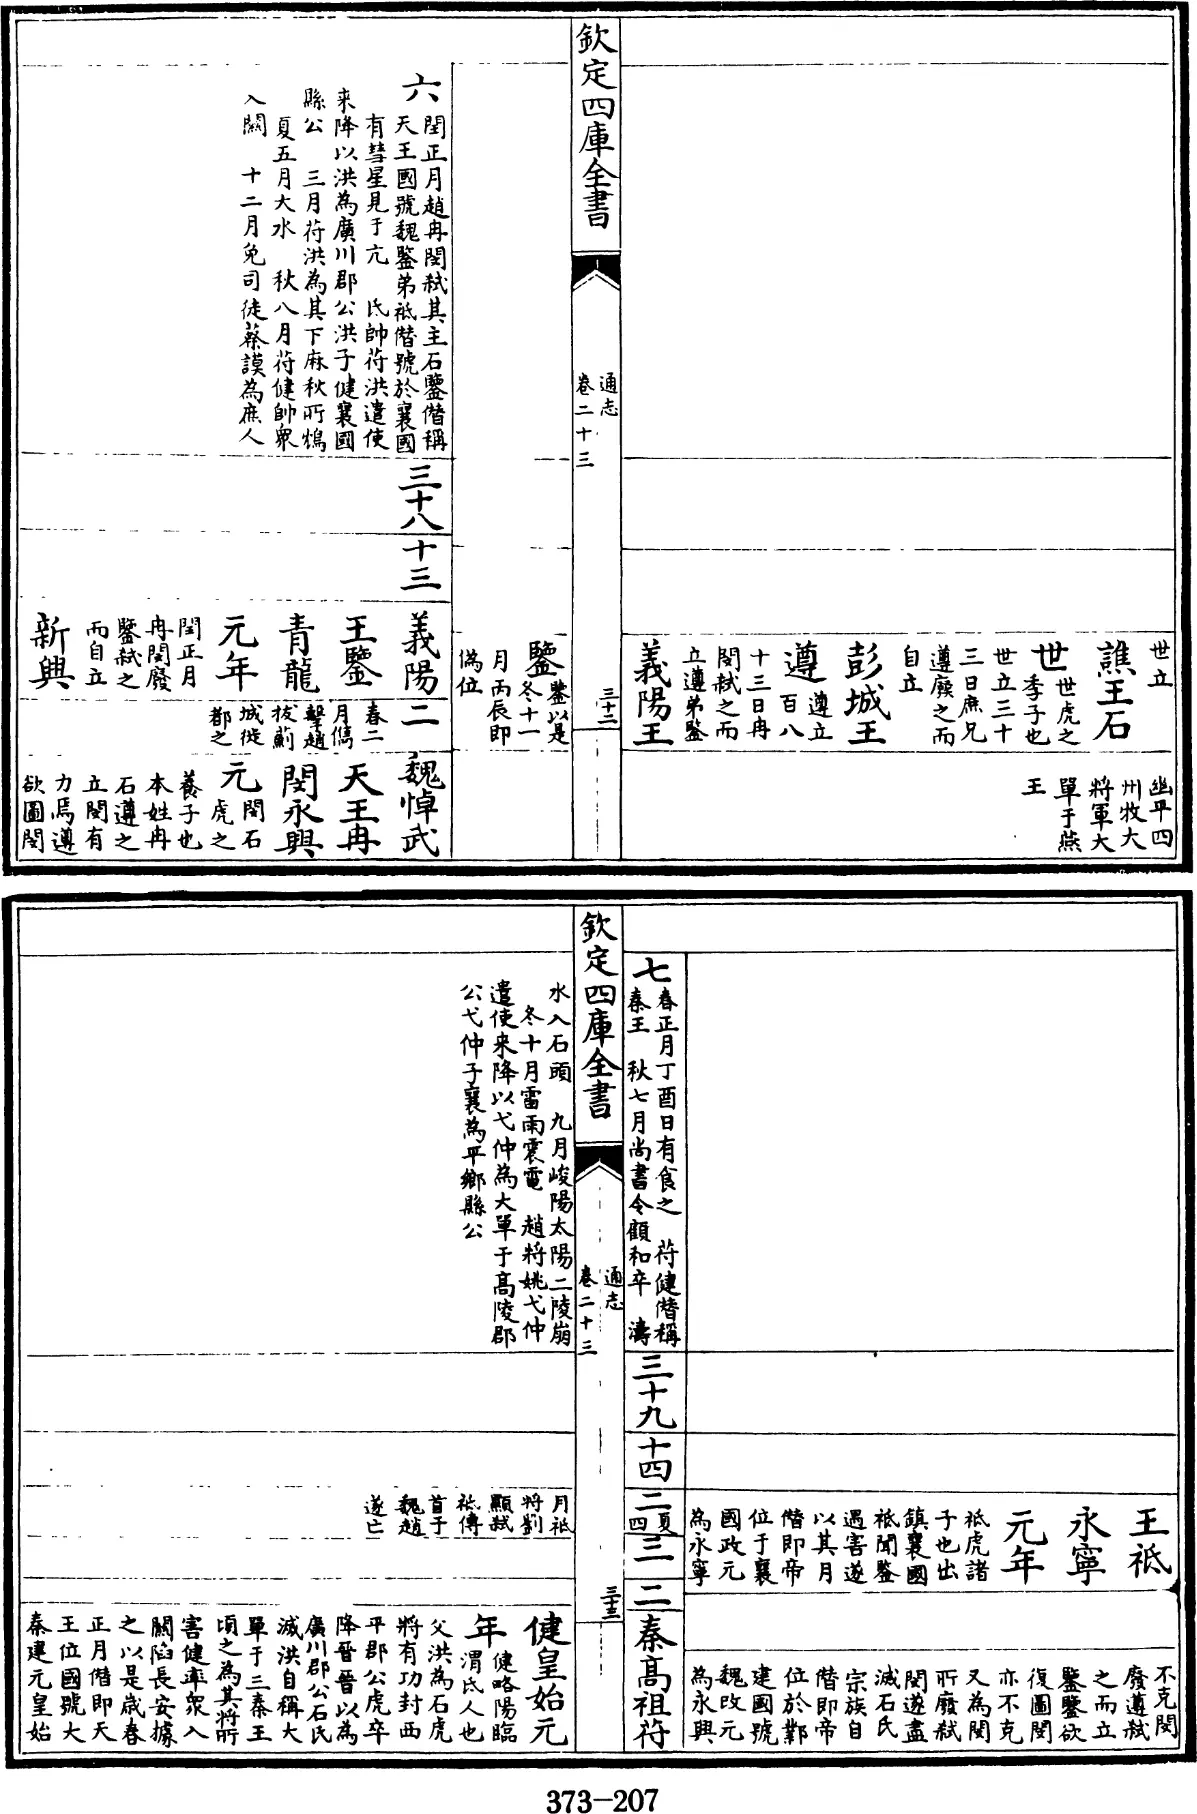 世立
譙王石
世
世虎之
季子也
世立三十
三日庶兄
遵廢之而
自立
彭城王
遵
遵立
百八
十三日冉
閔弒之而
立遵弟鑒
義陽王
幽平四
州牧大
將軍大
單于燕
王
欽定四庫全書
通志
卷二十三
三十二
鑒
鑒以是
冬十一
月丙辰即
偽位
六
閏正月趙冉閔弒其主石鑒僭稱
天王國號魏鑒弟祗僭號於襄國
有彗星見于亢　氐帥苻洪遣使
來降以洪為廣川郡公洪子健襄國
縣公　三月苻洪為其下麻秋所鴆
夏五月大水　秋八月苻健帥衆
入關　十二月免司徒蔡謨為庶人
三十八
十三
義陽
王鑒
青龍
元年
閏正月
冉閔廢
鑒弒之
而自立
新興
二
春二
月儁
擊趙
拔薊
城徙
都之
魏悼武
天王冉
閔永興
元
閔石
虎之
養子也
本姓冉
石遵之
立閔有
力焉遵
欲圖閔
王祗
永寧
元年
祗虎諸
子也出
鎮襄國
祗聞鑒
遇害遂
以其月
僭即帝
位于襄
國政元
為永寧
不克閔
廢遵弒
之而立
鑒鑒欲
復圖閔
亦不克
又為閔
所廢弒
閔遂盡
滅石氏
宗族自
僭即帝
位於鄴
建國號
魏改元
為永興
七
春正月丁酉日有食之　苻健僭稱
秦王　秋七月尚書令顧和卒　濤
三十九
十四
二
夏
四
三
二
秦高祖苻
欽定四庫全書
通志
卷二十三
三十三
水入石頭　九月峻陽太陽二陵崩
冬十月雷雨震電　趙將姚弋仲
遣使來降以弋仲為大單于高陵郡
公弋仲子襄為平鄉縣公
月祗
將劉
顯弒
祗傳
首于
魏趙
遂亡
健皇始元
年
健略陽臨
渭氐人也
父洪為石虎
將有功封西
平郡公虎卒
降晉晉以為
廣川郡公石氏
滅洪自稱大
單于三秦王
頃之為其將所
害健率衆入
關䧟長安據
之以是歲春
正月僭即天
王位國號大
秦建元皇始
373-207